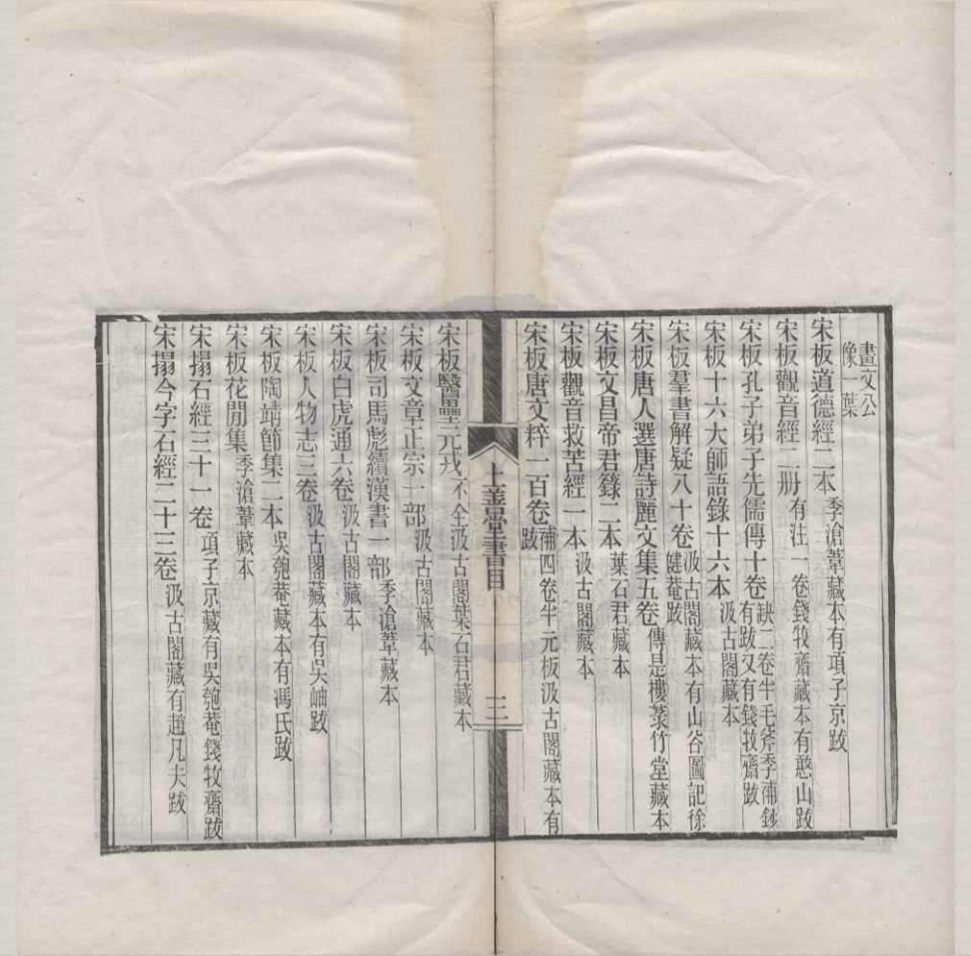 畫文公
像一葉
宋板道德經二本季滄葦藏本有項子京跋
宋板觀音經二册有注一卷錢牧齋藏本有憨山跋
宋板孔子弟子先儒傳十卷缺二卷半毛斧季補鈔有跋又有錢牧齋跋
宋板十六大師語錄十六本汲古閣藏本
宋板羣書解疑八十卷汲古閣藏本有山谷圖記徐健菴跋
宋板唐人選唐詩麗文集五卷傳是樓菉竹堂藏本
宋板文昌帝君籙二本葉石君藏本
宋板觀音救苦經一本汲古閣藏本
宋板唐文粹一百卷補四卷半元板汲古閣藏本有跋
上善堂書目
三
宋板醫壘元戎不全汲古閣葉石君藏本
宋板文章正宗一部汲古閣藏本
宋板司馬彪續漢書一部季滄葦藏本
宋板白虎通六卷汲古閣藏本
宋板人物志三卷汲古閣藏本有吳岫跋
宋板陶靖節集二本吳匏菴藏本有馮氏跋
宋板花閒集季滄葦藏本
宋搨石經三十一卷項子京藏有吳匏菴錢牧齋跋
宋搨今字石經二十三卷汲古閣藏有趙凡夫跋